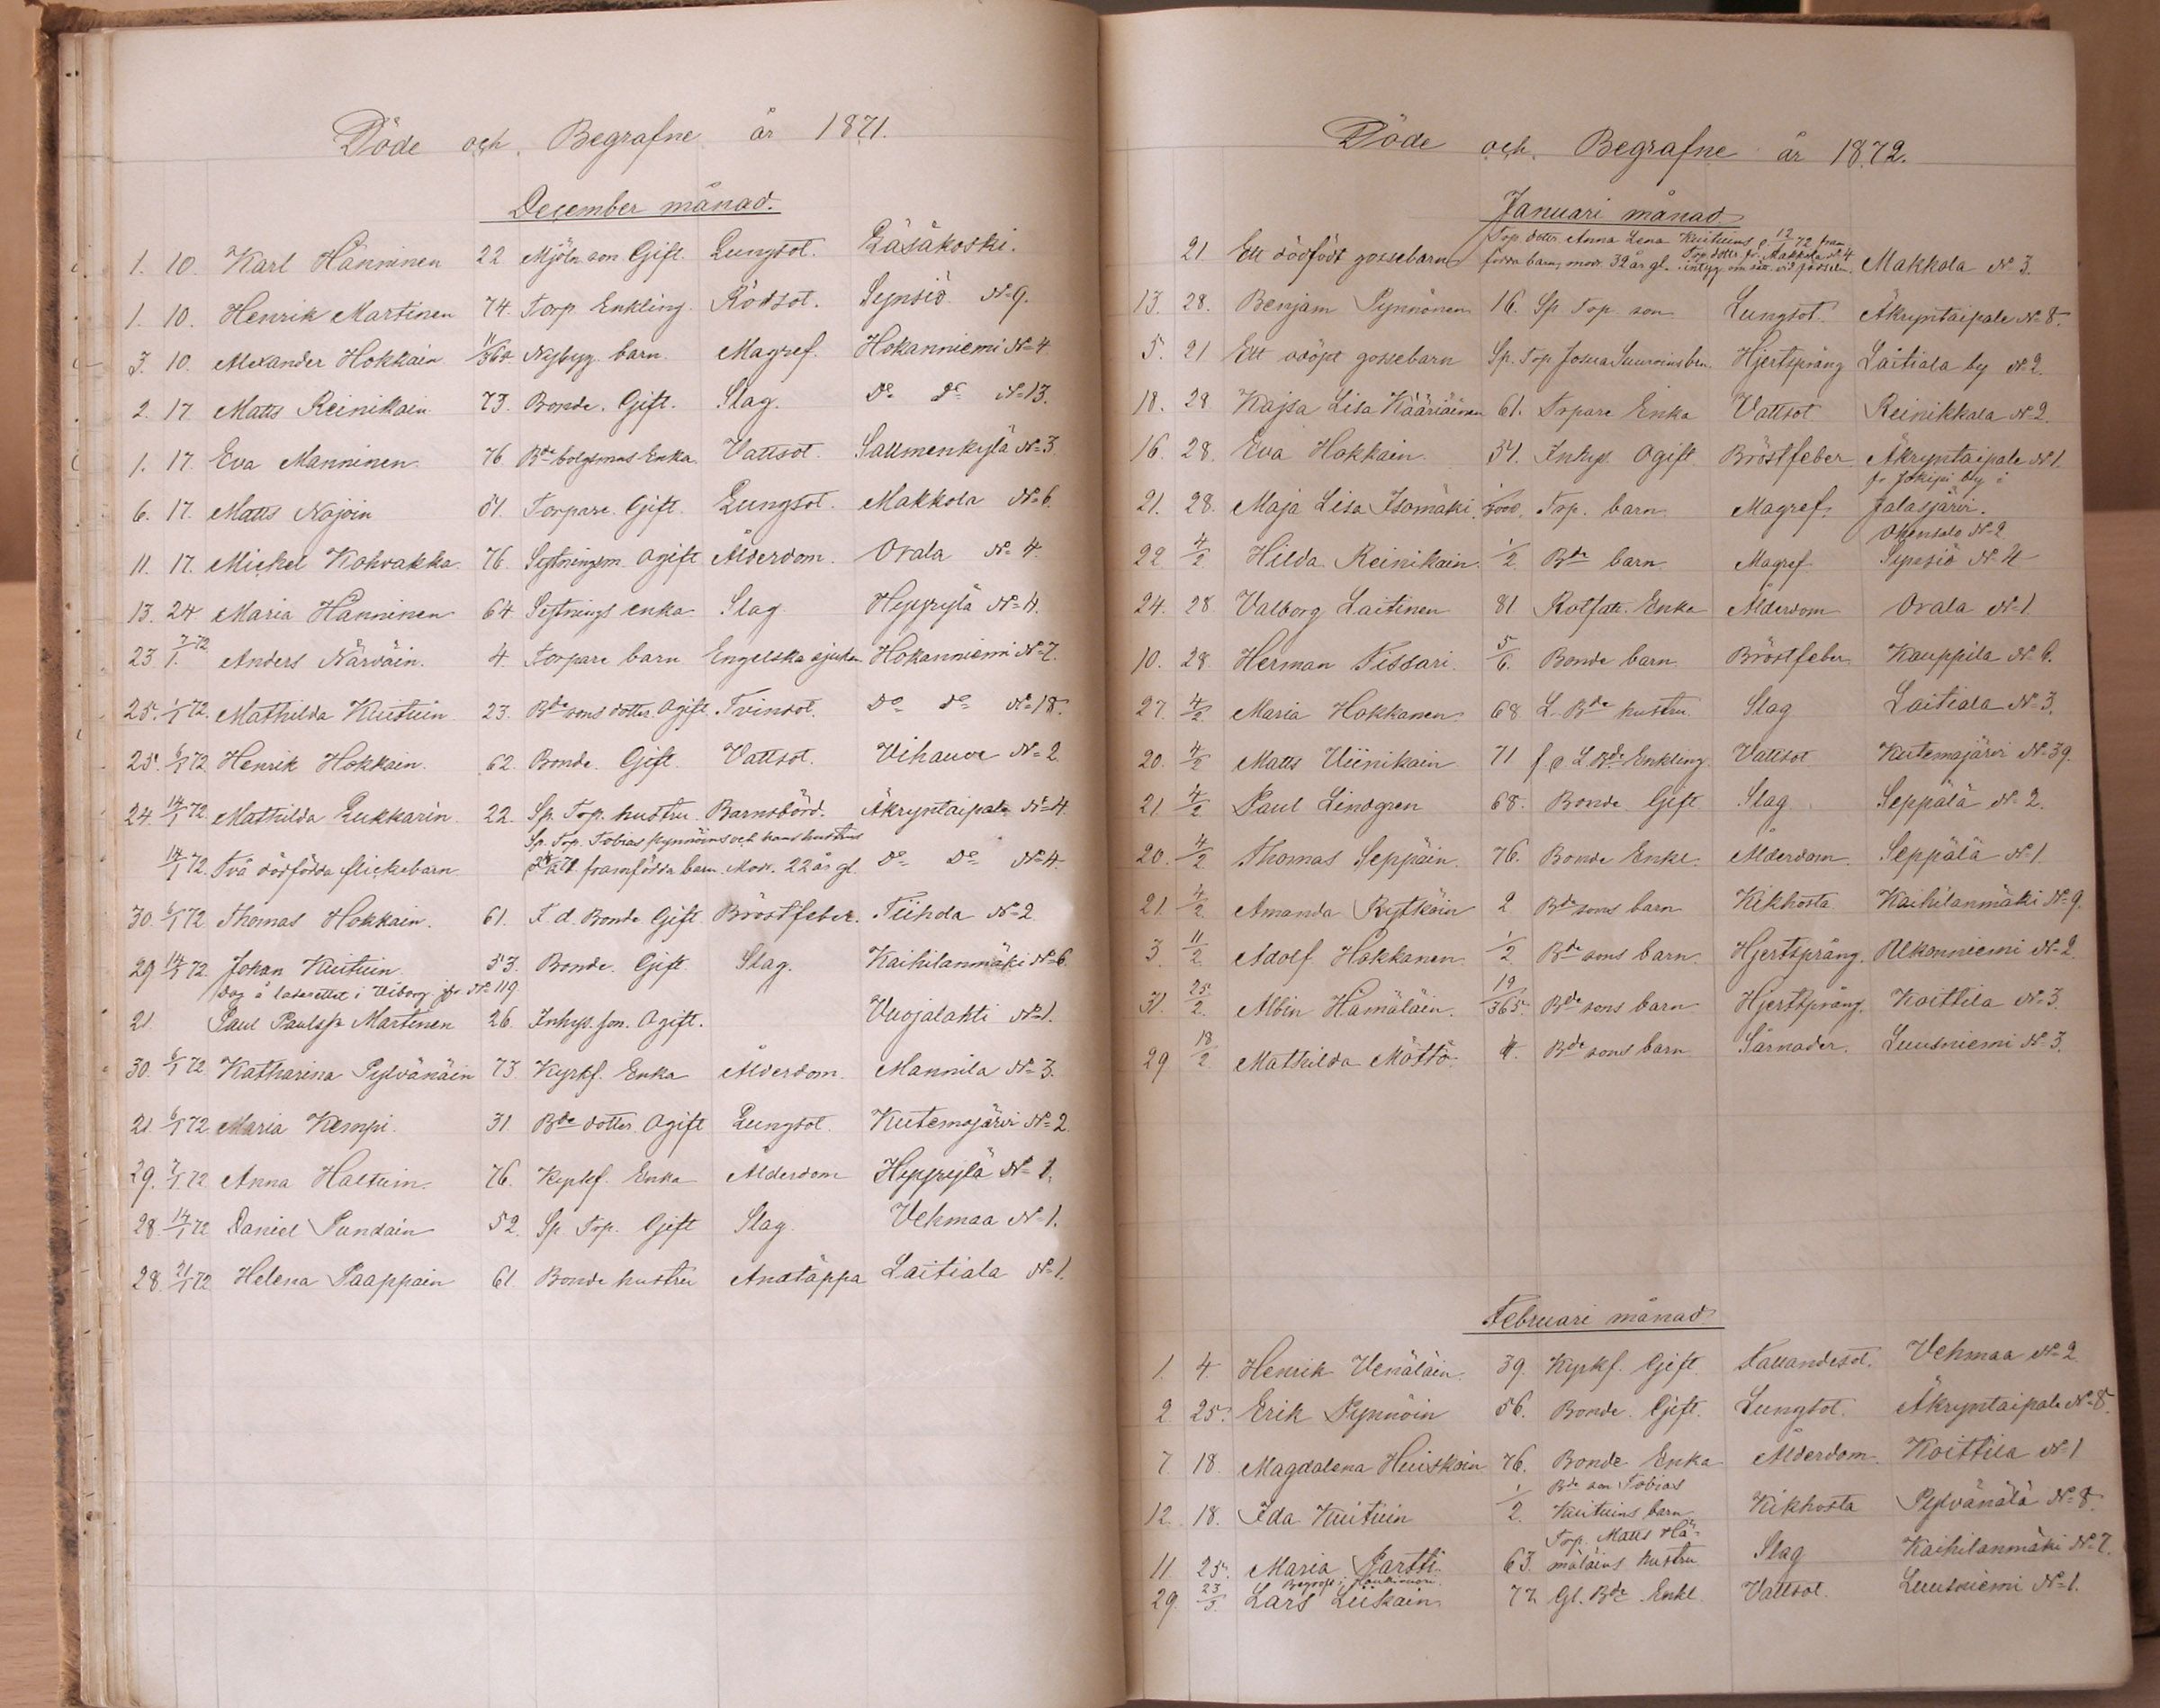 Döde och Begrafne år 1871.
December månad.
1. 10. Karl Hänninen 22 Mjöln. son. Gift. Lungsot. Läsäkoski.
1. 10. Henrik Martinen 74. Torp. Enkling. Rödsot. Synsiö No 9.
3. 10. Alexander Hokkain 11/365. Nybyg. barn. Magref. Hokanniemi No 4
2. 17. Matts Reinikain 73. Bonde. Gift. Slag. Do Do No 13.
1. 17. Eva Manninen 76 Bde bolsmans Enka. Vattsot. Salmenkylä No 3.
6. 17. Matts Nojoin 51. Torpare. Gift. Lungsot. Makkola No 6.
11. 17. Mickel Kohvakka. 76. Sytningsm. Ogift Ålderdom. Orala No 4.
13. 24 Maria Hänninen 64. Sytnings enka Slag. Hyyrylä No 4.
23 7/1. 72 Anders Närväin. 4 Torpare barn Engelska sjukan Hokanniemi No 7.
25. 1/1 72. Mathilda Kuituin 23. Bde sons dotter. Ogift. Tvinsot. Do Do No 18.
25. 6/1 72 Henrik Hokkain. 62. Bonde. Gift. Vattsot. Vihavoe No 2.
24. 14/1 72. Mathilda Lukkarin. 22. Sp. Torp. hustru. Barnsbörd. Äkryntaipale No 4.
Sp. Torp. Tobias Pynnöins och hans hustrus
14/1 72. Två dödfödda flickebarn framfödda barn. Mod. 22 år gl. Do Do No 4.
30. 6/1 72 Thomas Hokkain. 61. F. d. Bonde Gift. Bröstfeber. Tiihola No 2
29 14/1 72 Johan Kuituin 53. Bonde. Gift. Slag. Kaihilanmäki No 6.
Dog å lasarettet i Viborg No 119.
21. Paul Paulss. Martinen 26. Inhys. son. Ogift. Vuojalahti No 1.
30. 6/1 72 Katharina Pylvänäin 73 Kyrkf. Enka Ålderdom. Mannila No 3.
21. 6/1 72 Maria Kempi. 31. Bde dotter. Ogift Lungsot. Kutemajärvi No 2.
29. 7/1 72 Anna Haltuin. 76. Kyrkf. Enka Ålderdom Hyyrylä No 1.
28. 14/1 72 Daniel Pundain 52. Sp. Torp. Gift Slag. Vehmaa No 1.
28. 21/1 72 Helena Paappain 61. Bonde hustru Andtäppa Laitiala No 1.
Döde och Begrafne år 1872.
Januari månad
Torp. dotter Anna Lena Kuituins 12/1 72 fram
21. Ett dödfödt gossebarn födda barn, mod. 32 år gl. Makkola No 3.
13. 28. Benjam Pynnönen 16. Sp. Torp. son Lungsot. Äkryntaipale No 8.
5. 21 Ett odöpt gossebarn Sp. Torp Hjertspräng Laitiala by No 2.
18. 28 Kajsa Lisa Kääriäinen 61. Torpare Enka Vattsot Reinikkala No 2.
16. 28. Eva Hokkain. 54. Inhys. Ogift Bröstfeber Äkryntaipale No 1.
fr Jokipi by i
21. 28. Maja Lisa Isomäki. Torp. barn. Magref. Jalasjärvi.
Ohensalo No 2.
22 4/2 Hilda Reinikain. 1/2. Bde barn. Magref. Synsiö No 4
24. 28. Valborg Laitinen 81. Rotfatt. Enka Ålderdom Orala No 1
10. 28. Herman Tissari. 5/6. Bonde barn. Bröstfeber Kauppila No 6.
27. 4/2 Maria Hokkanen. 68 L. Bde hustru. Slag Laitiala No 3.
20. 4/2 Matts Viinikain 71 f. d. L. Bde Enkling. Vattsot Kutemajärvi No 39.
21 4/2 Paul Lindgren 68. Bonde. Gift Slag. Seppälä No 2.
20. 4/2 Thomas Seppäin. 76. Bonde Enkl. Ålderdom. Seppälä No 1
21. 4/2. Amanda Rytköin 2 Bde sons barn Kikhosta Kaihilanmäki No 9.
3 11/2. Adolf Hokkanen. 1/2 Bde sons barn. Hjertspräng. Ulkonniemi No 2.
31. 25/2. Albin Hämäläin. 12/365. Bde sons barn. Hjertspräng. Koittila No 3.
29 18/2. Mathilda Möttö. 4. Bde sons barn Särnader. Luusniemi No 3.
Februari månad
1. 4. Henrik Venäläin. 39. Kyrkf. Gift. Fallandesot. Vehmaa No 2
2 25. Erik Pynnöin 56. Bonde. Gift. Lungsot. Äkryntaipale No 8.
7. 18. Magdalena Huiskoin 76. Bonde Enka Ålderdom. Koittila No 1
Bde son Tobias
12. 18. Ida Kuituin 1/2. Kuituins barn Kikhosta Pylvänälä No 8.
Torp. Matts Hä-
11 25. Maria Partti 63. mäläins hustru Slag Kaihilanmäki No 7.
Begrofs i Haukivuori.
29. 23/3. Lars Liiskain 72 Gl. Bde Enkl. Vattsot. Luusniemi No 1.